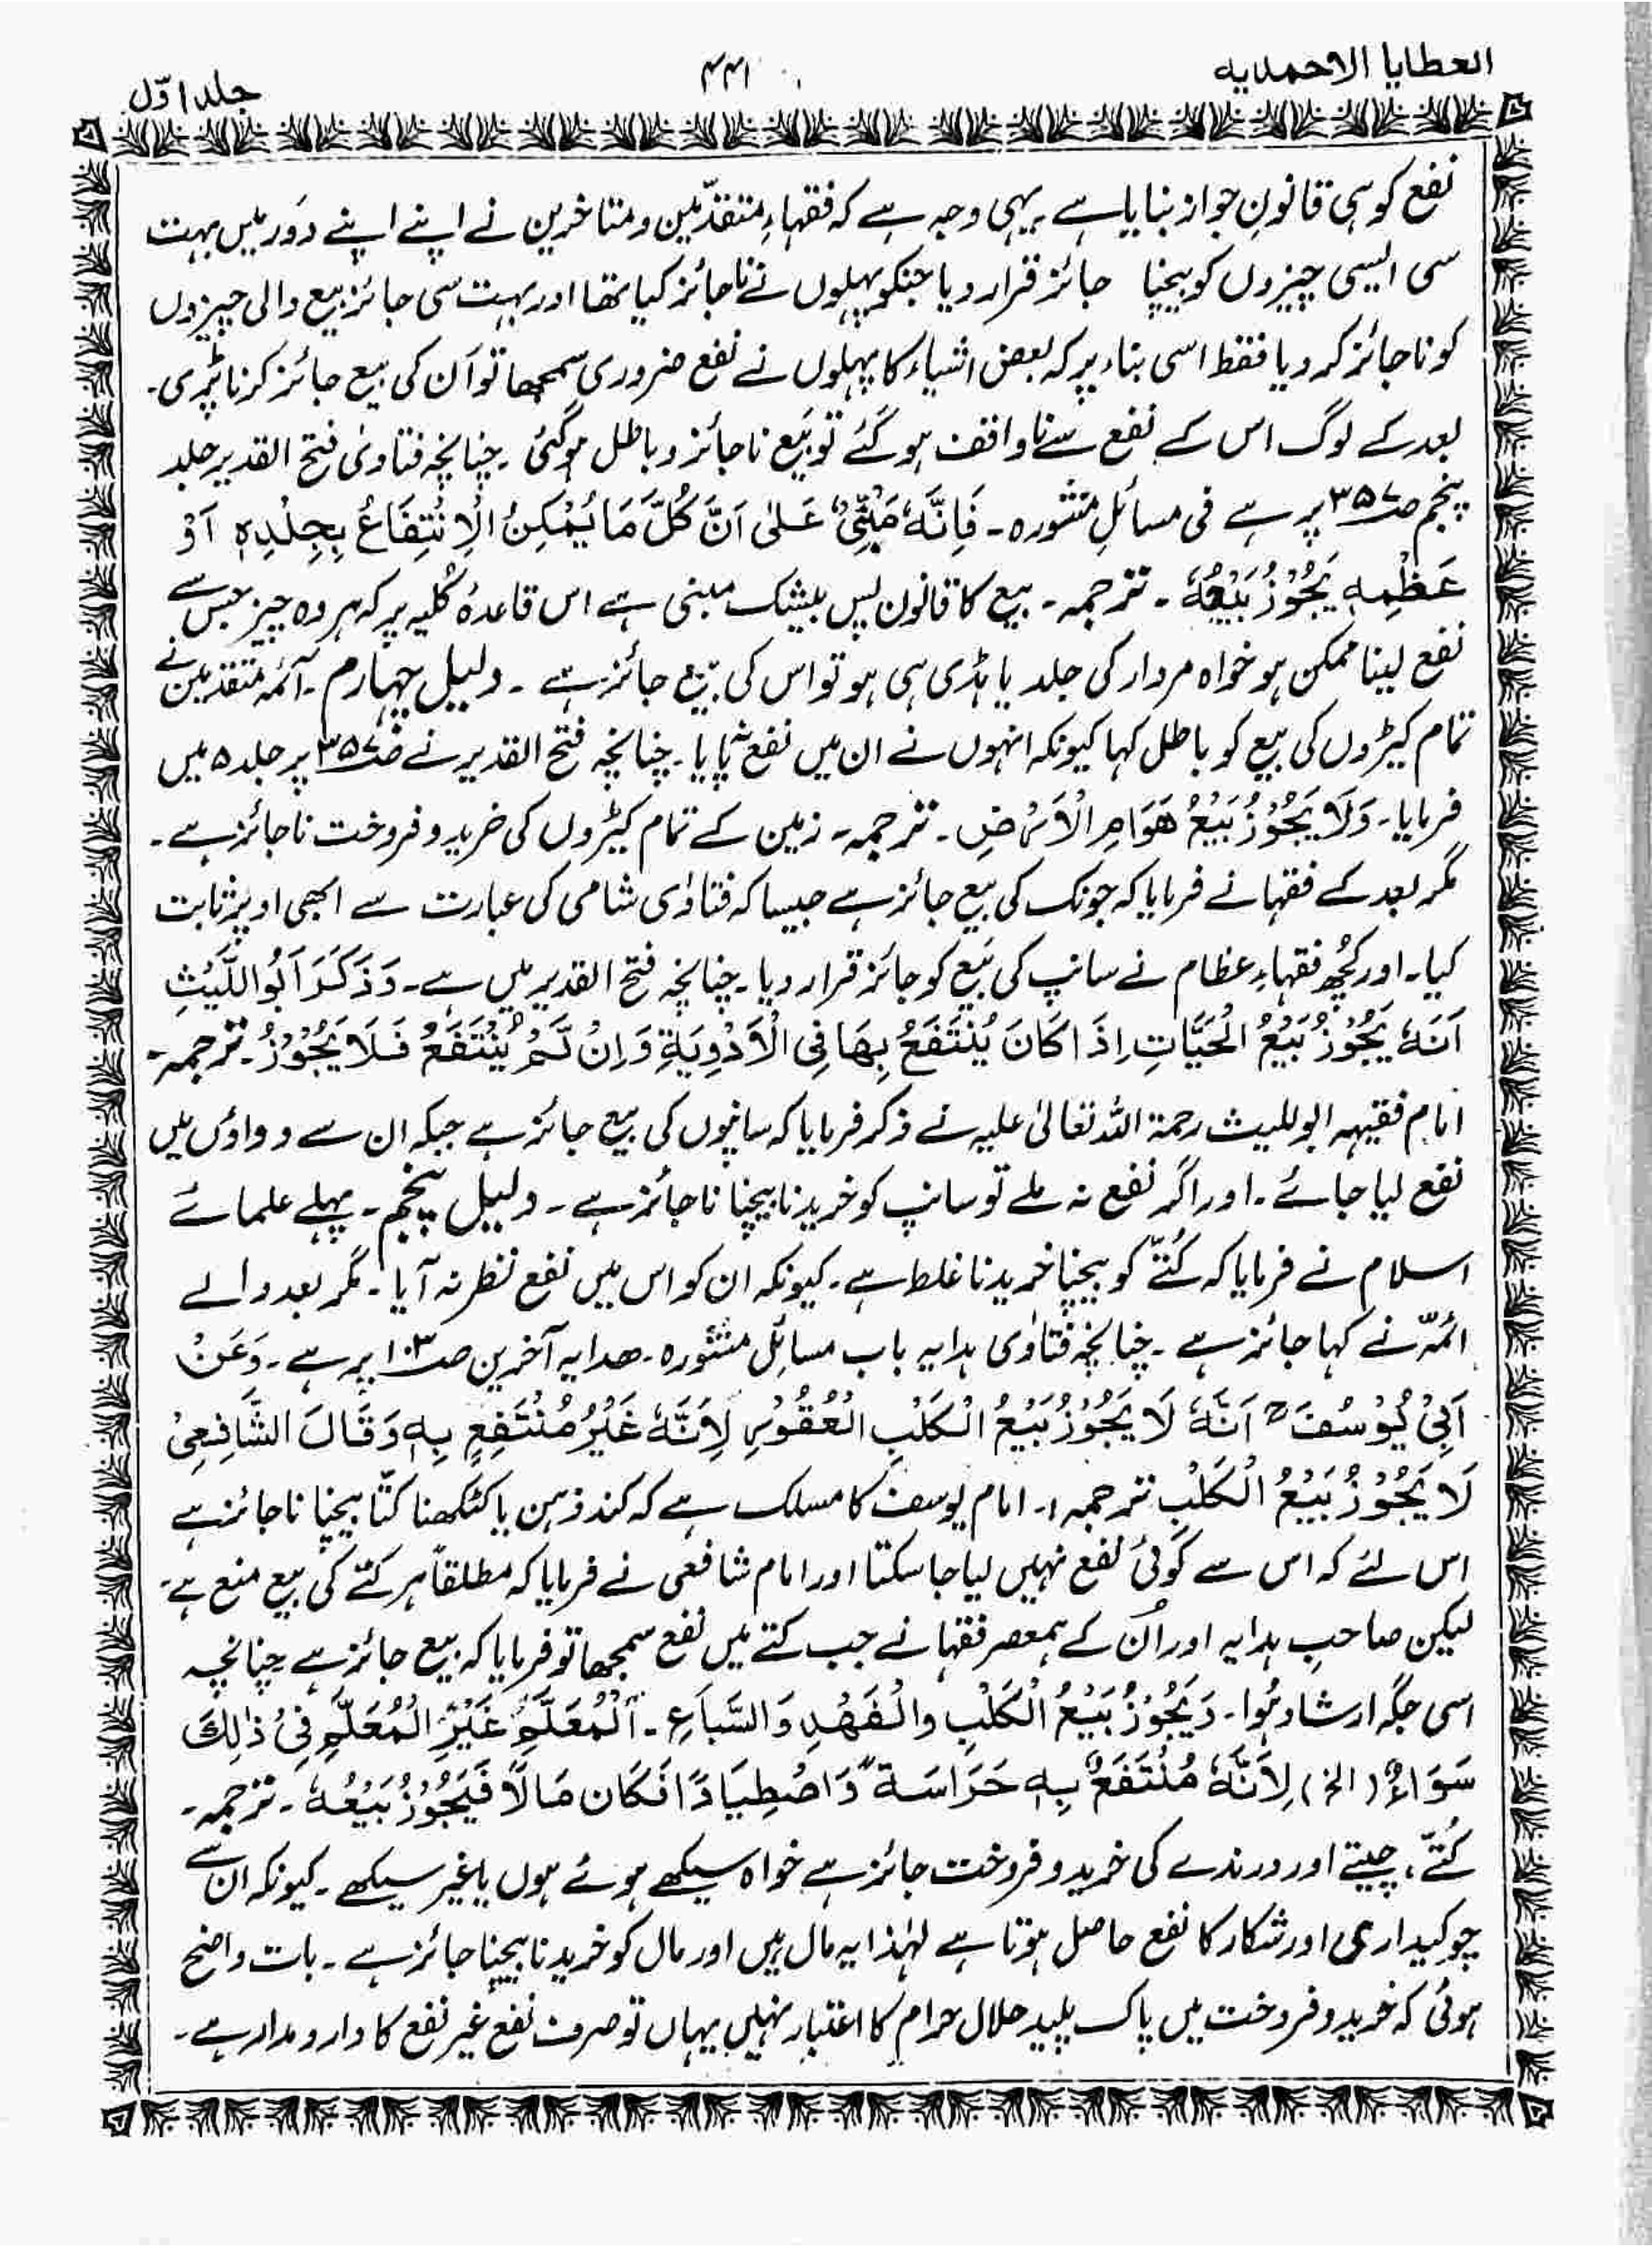 العطایا الاحمدیه
۴۴۱
جلد اوّل
نفع کو ہی قانونِ جواز بنایا ہے یہی وجہ ہے کہ فقہاءِ متقدّمین و متاخرین نے اپنے اپنے دَور میں بہت
سی ایسی چیزوں کو بیچنا جائز قرار دیا جنکو پہلوں نے ناجائز کہا تھا اور بہت سی جائز بیع والی چیزوں
کو ناجائز کر دیا فقط اسی بناء پر کہ بعض اشیاء کا پہلوں نے نفع ضروری سمجھا تو اُن کی بیع جائز کرنا پڑی۔
بعد کے لوگ اس کے نفع سے ناواقف ہو گئے تو بَیع ناجائز و باطل ہو گئی۔ چنانچہ فتاوٰی فتح القدیر جلد
پنجم صـ۳۵۷ پر ہے فی مسائلِ منثورہ۔ فَاِنَّهٗ مَبْنِیٌّ عَلٰی اَنَّ کُلَّ مَا یُمْکِنُ الْاِنْتِفَاعُ بِجِلْدِہٖ اَوْ
عَظْمِهٖ یَجُوْزُ بَیْعُهٗ۔ ترجمہ۔ بیع کا قانون پس بیشک مبنی ہے اس قاعدہُ کُلیہ پر کہ ہر وہ چیز جس سے
نفع لینا ممکن ہو خواہ مردار کی جلد یا ہڈی ہی ہو تو اس کی بیع جائز ہے۔ دلیل چہارم۔ آئمہ متقدمین نے
تمام کیڑوں کی بیع کو باطل کہا کیونکہ انہوں نے ان میں نفع نہ پایا۔ چنانچہ فتح القدیر نے صـ۳۵۷ پر جلد ۵ میں
فرمایا۔ وَلَا یَجُوْزُ بَیْعُ هَوَامِ الْاَرْضِ۔ ترجمہ۔ زمین کے تمام کیڑوں کی خرید و فروخت ناجائز ہے۔
مگر بعد کے فقہا نے فرمایا کہ جونک کی بیع جائز ہے جیسا کہ فتاوٰی شامی کی عبارت سے ابھی اوپر ثابت
کیا۔ اور کُچھ فقہاءِ عظام نے سانپ کی بَیع کو جائز قرار دیا۔ چنانچہ فتح القدیر میں ہے۔ وَذَکَرَ اَبُو اللَّیْثِ
اَنَهٗ یَجُوْزُ بَیْعُ الْحَیَّاتِ اِذَا کَانَ یُنْتَفَعُ بِهَا فِی الْاَدْوِیَةِ وَاِنْ لَّمْ یُنْتَفَعُ فَلَا یَجُوْزُ۔ ترجمہ۔
امام فقیہہ ابواللیث رحمۃ اللہ تعالیٰ علیہ نے ذکر فرمایا کہ سانپوں کی بیع جائز ہے جبکہ ان سے دواؤں میں
نفع لیا جائے۔ اور اگر نفع نہ ملے تو سانپ کو خریدنا بیچنا ناجائز ہے۔ دلیل پنجم۔ پہلے علمائے
اسلام نے فرمایا کہ کُتّے کو بیچنا خریدنا غلط ہے۔ کیونکہ ان کو اس میں نفع نظر نہ آیا۔ مگر بعد والے
ائمّہ نے کہا جائز ہے۔ چنانچہ فتاوٰی ہدایہ باب مسائلِ منثورہ۔ ھدایہ آخرین صـ۱۰۳ پر ہے۔ وَعَنْ
اَبِیْ یُوْسُفَ اَنَّهٗ لَا یَجُوْزُ بَیْعُ الْکَلْبِ الْعُقُوْرِ لِاَنَّهٗ غَیْرُ مُنْتَفِعٍ بِهٖ وَقَالَ الشَّافِعِیْ
لَا یَجُوْزُ بَیْعُ الْکَلْبِ ترجمہ:۔ امام یوسف کا مسلک ہے کہ کند ذہن یا کٹکھنا کتّا بیچنا ناجائز ہے
اس لئے کہ اس سے کوئی نفع نہیں لیا جا سکتا اور امام شافعی نے فرمایا کہ مطلقاً ہر کتے کی بیع منع ہے۔
لیکن صاحبِ ہدایہ اور اُن کے ہمعصر فقہا نے جب کتے میں نفع سمجھا تو فرمایا کہ بیع جائز ہے چنانچہ
اسی جگہ ارشاد ہُوا۔ وَیَجُوْزُ بَیْعُ الْکَلْبِ وَالْفَهْدِ وَالسَّبَاعِ۔ اَلْمُعَلَّمِ غَیْرِ الْمُعَلَّمِ فِیْ ذٰلِکَ
سَوَاءٌ (الخ) لِاَنَّهٗ مُنْتَفَعٌ بِهٖ حَرَاسَةً وَاصْطِیَادًا فَکَان مَالًا فَیَجُوْزُ بَیْعُهٗ۔ ترجمہ۔
کُتّے، چیتے اور درندے کی خرید و فروخت جائز ہے خواہ سیکھے ہوئے ہوں یا غیر سیکھے۔ کیونکہ ان سے
چوکیداری اور شکار کا نفع حاصل ہوتا ہے لہٰذا یہ مال ہیں اور مال کو خریدنا بیچنا جائز ہے۔ بات واضح
ہوئی کہ خرید و فروخت میں پاک پلید حلال حرام کا اعتبار نہیں یہاں تو صرف نفع غیر نفع کا دار و مدار ہے۔